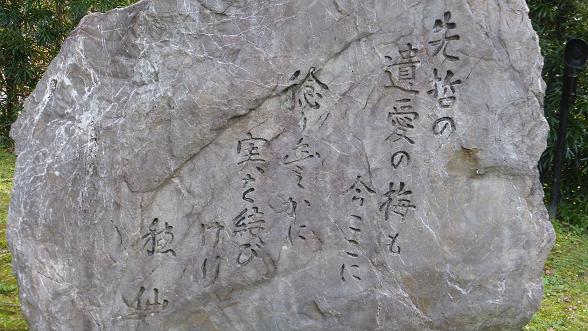 先哲の
遺愛の梅も
今ここに
稔り豊かに
実を結び
けり
穂仙